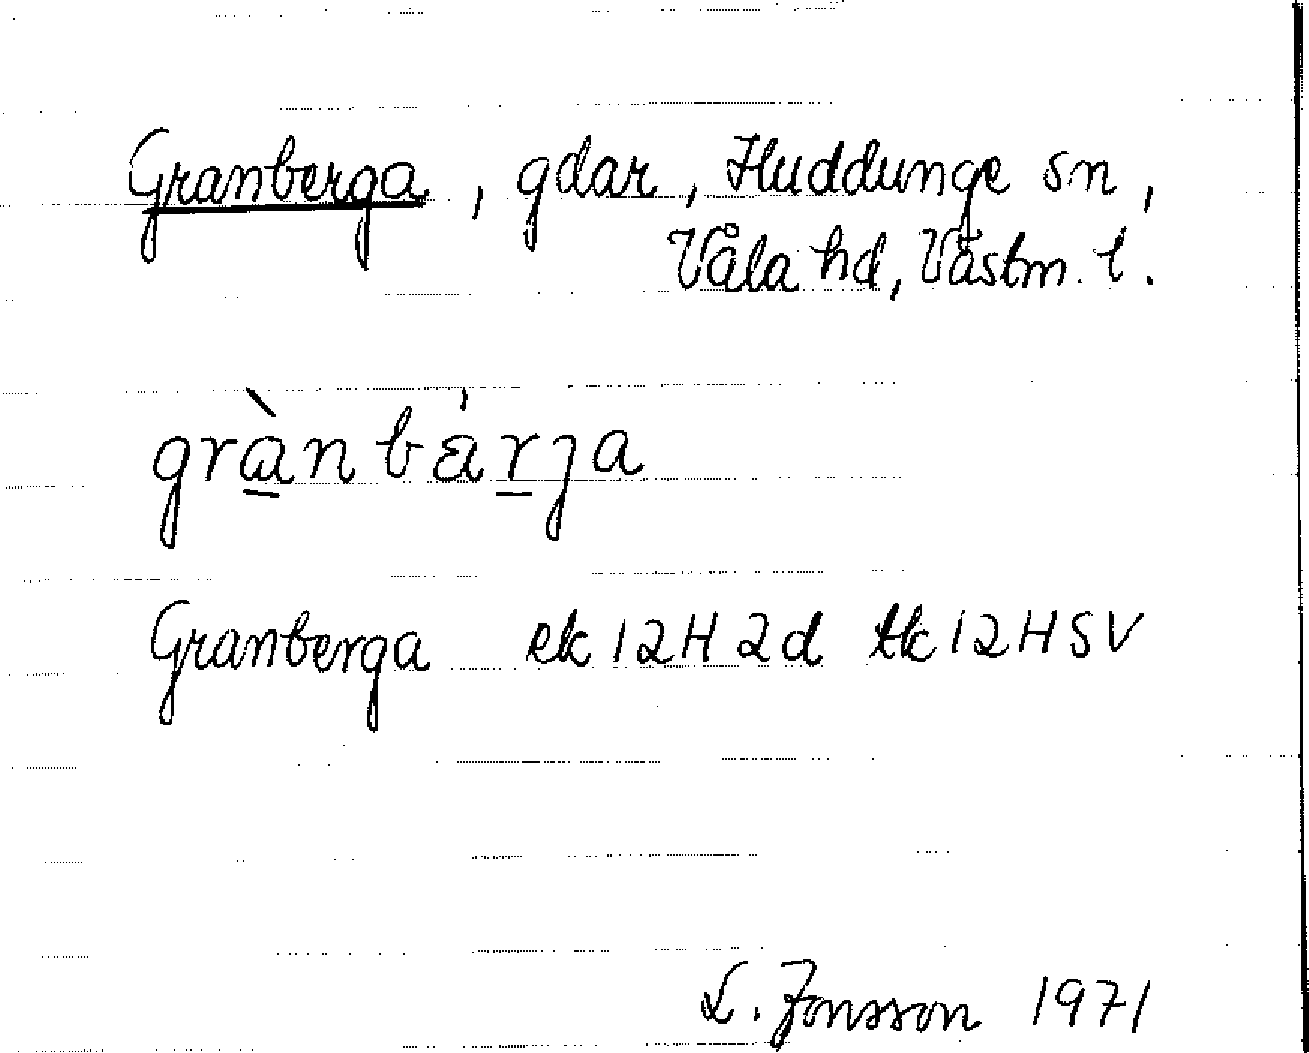 Granberga, gdar, Huddunge sn,
Våla hd, Västm. l.
grànbärja
Granberga ek 12H 2d tk 12H SV
L. Jonsson 1971